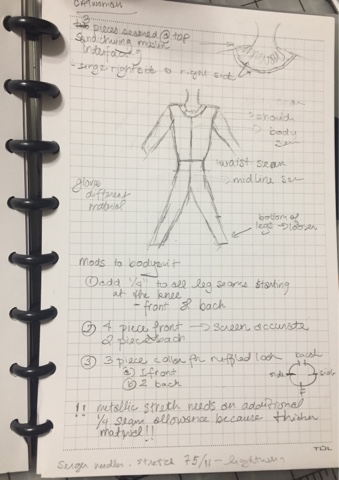 3 pieces seamed @ top
Sandwiching
- serge right side to right side
should
body
waist seam
midline
different
material
bottom of
legs → looser
mods to bodysuit
① add 1/4" to all leg seams starting
at the knee
- front & back
② 4 piece front → screen accurate
2 piece back
③ 3 piece collar for ruffled look
ⓐ 1 front
ⓑ 2 back
back
side
side
F
!! metallic stretch needs an additional
1/4 seam allowance because thicker
material!!
TUL
Serger needles - stretch 75/11 -